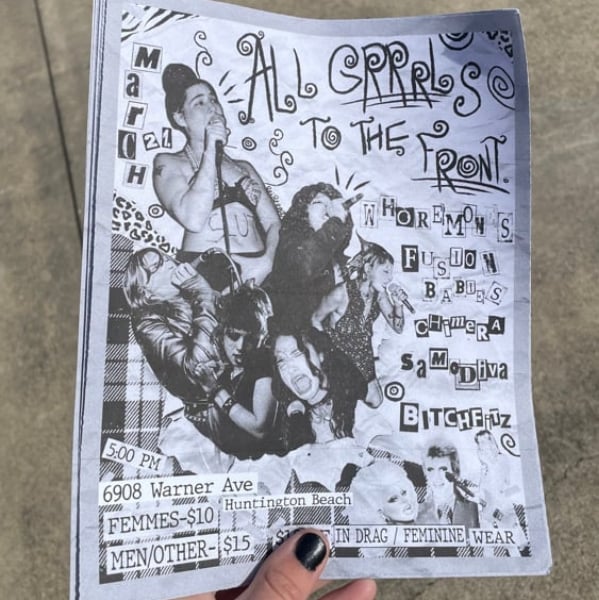 MarCH
21
ALL GRRRLS
TO THE FRONT.
WHOREMONES
FUSION
BABIES
CHimeRA
SaMoDiva
BITCHFITZ
SLUT
5:00 PM
6908 Warner Ave
Huntington Beach
FEMMES-$10
MEN/OTHER-$15
IN DRAG / FEMININE WEAR